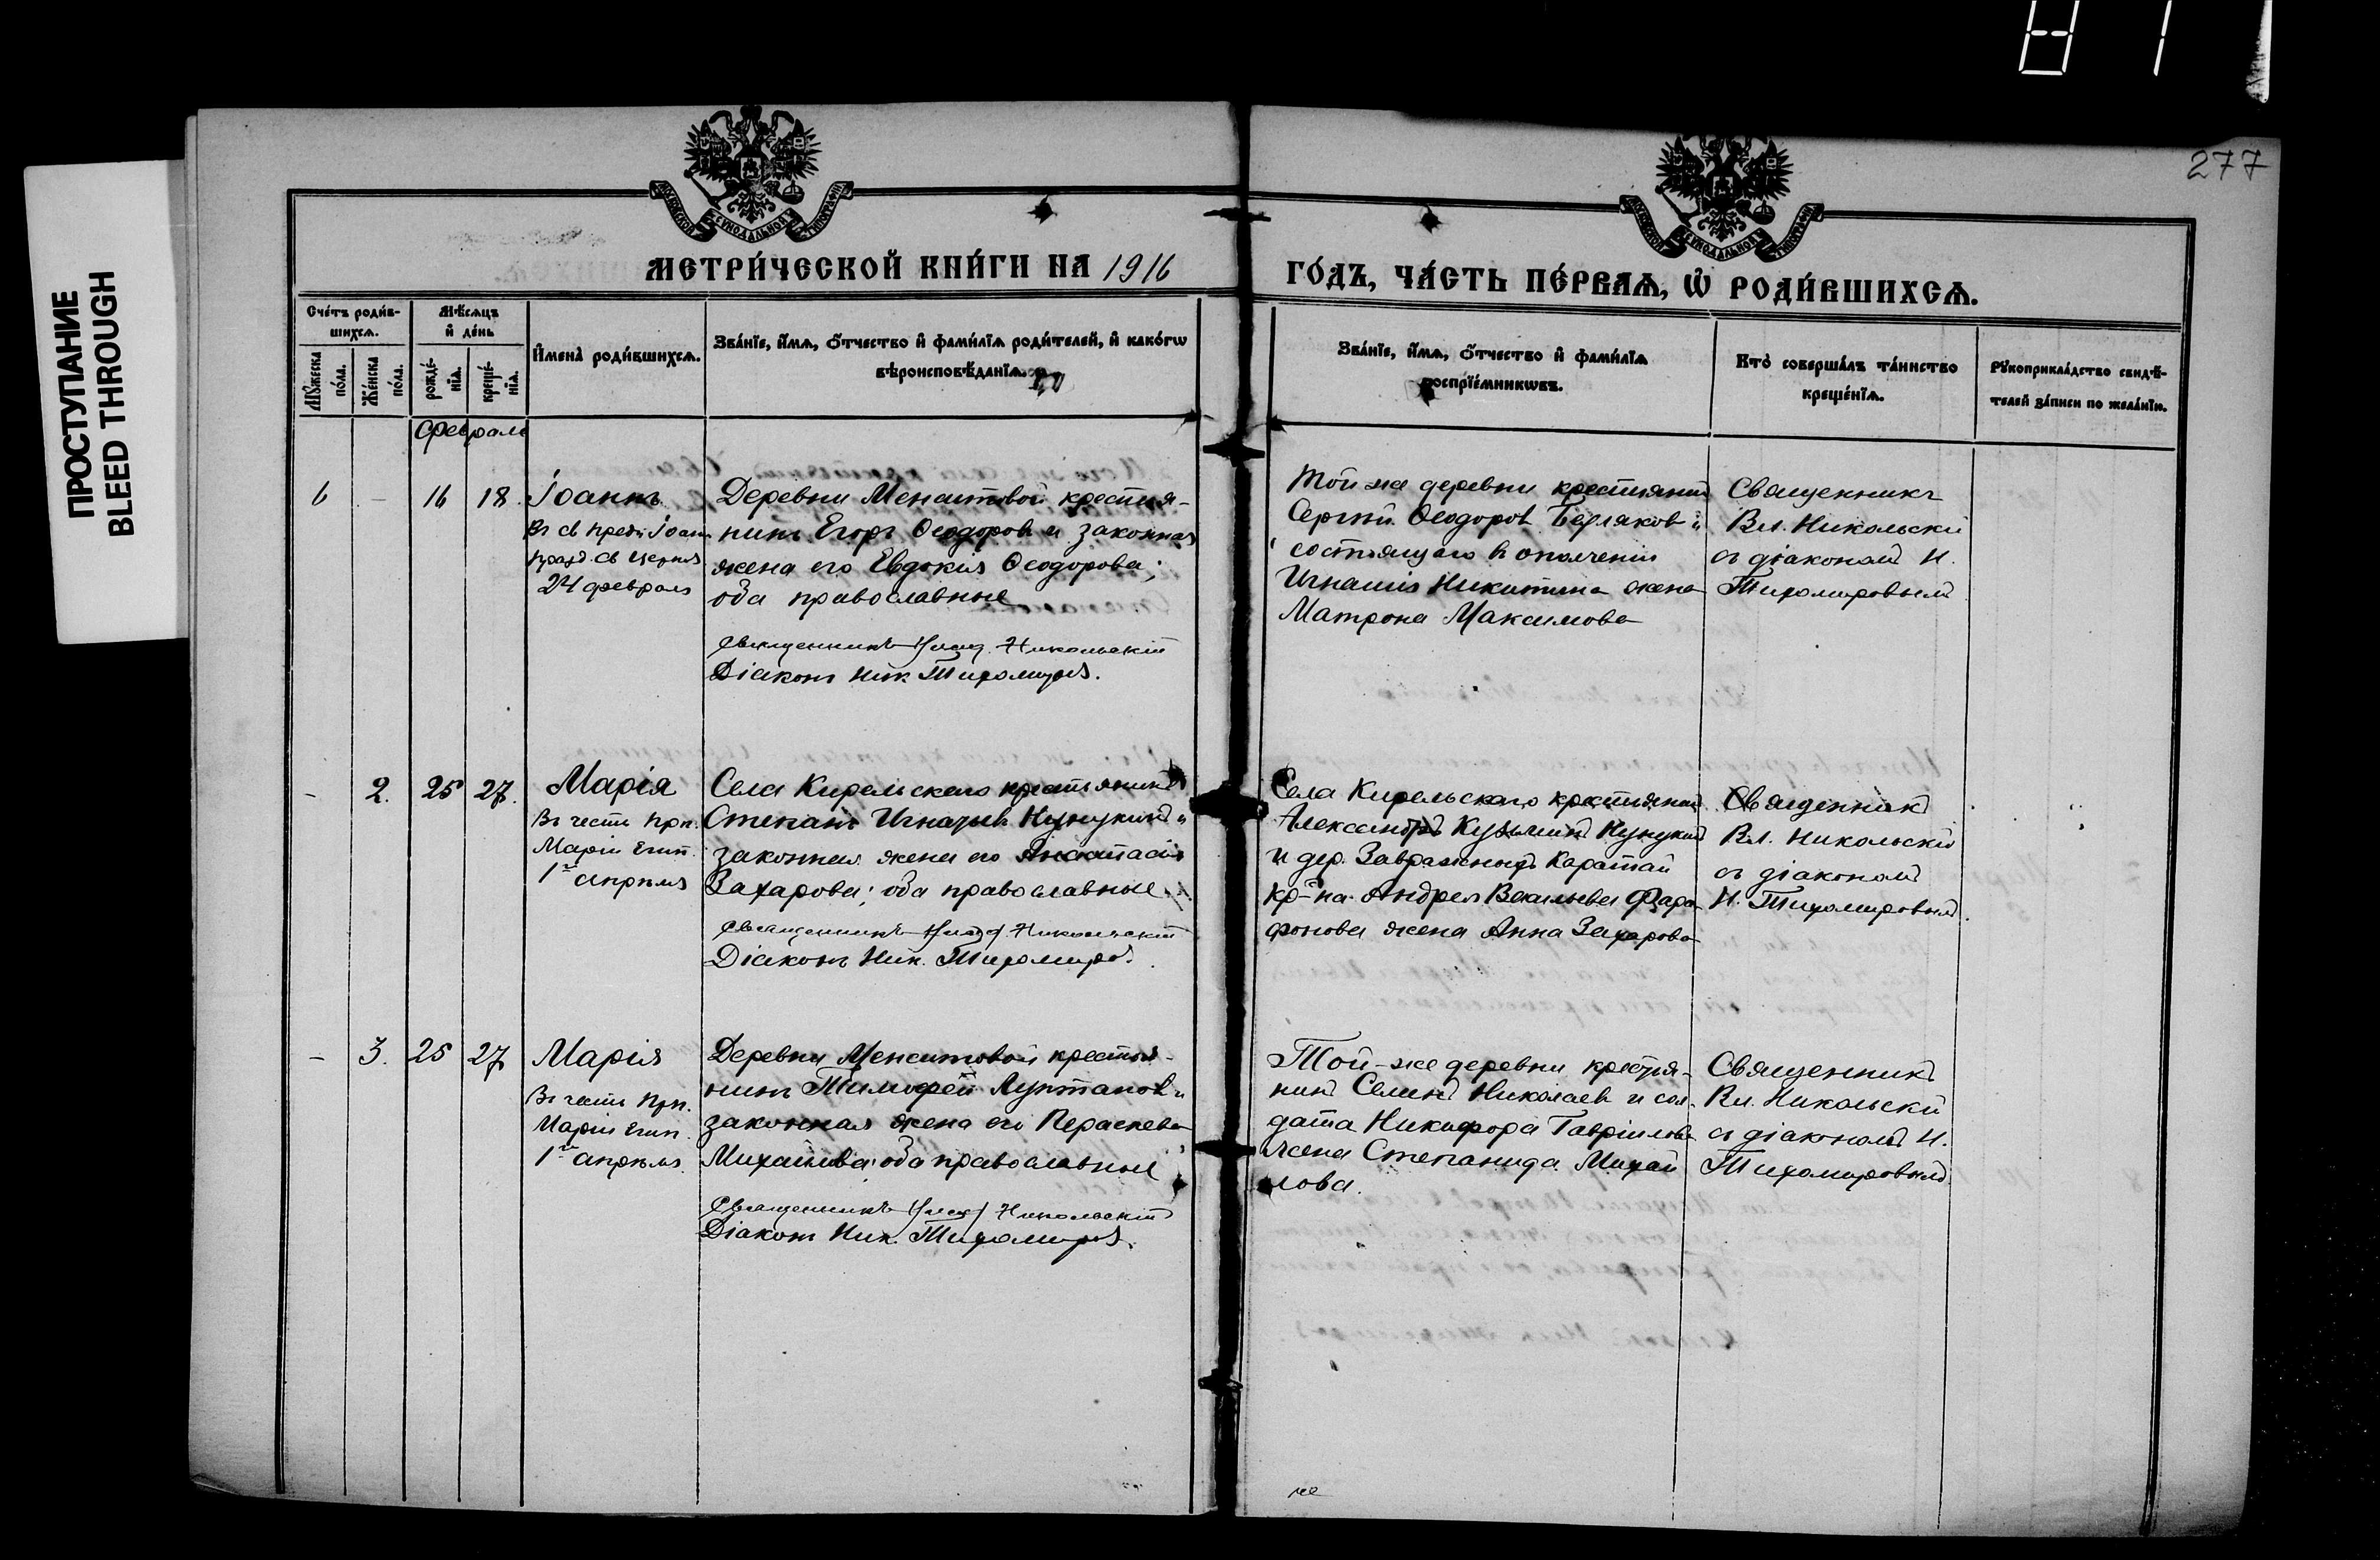 ПРОСТУПАНИЕ
BLEED THROUGH
277
МОСКОВСКОЙ СѴНОДАЛЬНОЙ ТИПОГРАФІИ
МОСКОВСКОЙ СѴНОДАЛЬНОЙ ТИПОГРАФІИ
МЕТРИ́ЧЕСКОЙ КНИ́ГИ НА 1916
ГО́ДЪ, ЧА́СТЬ ПЕ́РВАѦ, Ѡ҆ РОДИ́ВШИХСѦ.
Сче́тъ роди́в-
шихсѧ.
Мꙋ́жеска
по́ла.
Же́нска
по́ла.
Мѣ́сѧцъ
и҆ де́нь
рожде́-
нїѧ.
креще́-
нїѧ.
И҆мена̀ роди́вшихсѧ.
Зва́нїе, и҆́мѧ, ѻ҆́тчество и҆ фами́лїѧ роди́телей, и҆ како́гѡ
вѣроисповѣ́данїѧ.
Зва́нїе, и҆́мѧ, ѻ҆́тчество и҆ фами́лїѧ
воспрїе́мникѡвъ.
Кто̀ соверша́лъ та́инство
креще́нїѧ.
Рꙋкоприкла́дство свидѣ́-
телей за́писи по жела́нїю.
Февраль
6 - 16 18.
Іоаннъ
24 февраля
Деревни Менситовой крестья-
нинъ Егоръ Ѳеодоров и законная
жена его Евдокия Ѳеодорова;
оба православные
Священникъ Влад. Никольскій
Діаконъ Ник. Тихомиров.
Той же деревни крестьянин
Сергѣй Ѳеодоров и
состоящаго в ополчении
Игнатія Никитина жена
Матрона Максимова
Священникъ
Вл. Никольскій
съ діаконом Н.
Тихомировым
- 2. 25 27.
Марія
Въ честь Прп.
Маріи Егип.
1го апрѣля
Села Кирельскаго крестьянинъ
Степанъ Игнатьев и
законная жена его Анастасія
Захарова; оба православные.
Священникъ Влад. Никольскій
Діаконъ Ник. Тихомиров.
Села Кирельскаго крестьянин
Александръ Кузьмин
и дер. Заовражных Каратай
кр-на Андрея Васильева Фара-
фонова жена Анна Захарова
Священник
Вл. Никольскій
съ діаконом
Н. Тихомировым.
- 3. 25 27
Марія
Въ честь Прп.
Маріи Егип.
1го апрѣля.
Деревни Менситовой крестья-
нинъ Тимофей Луптапов и
законная жена его Параскева
Михайлова; оба православные
Священникъ Влад. Никольскій
Діаконъ Ник. Тихомиров.
Той-же деревни крестья-
нин Семен Николаев и сол-
дата Никифора Гаврилова
жена Степанида Михай
лова.
Священник
Вл. Никольскій
съ діаконом Н.
Тихомировым.